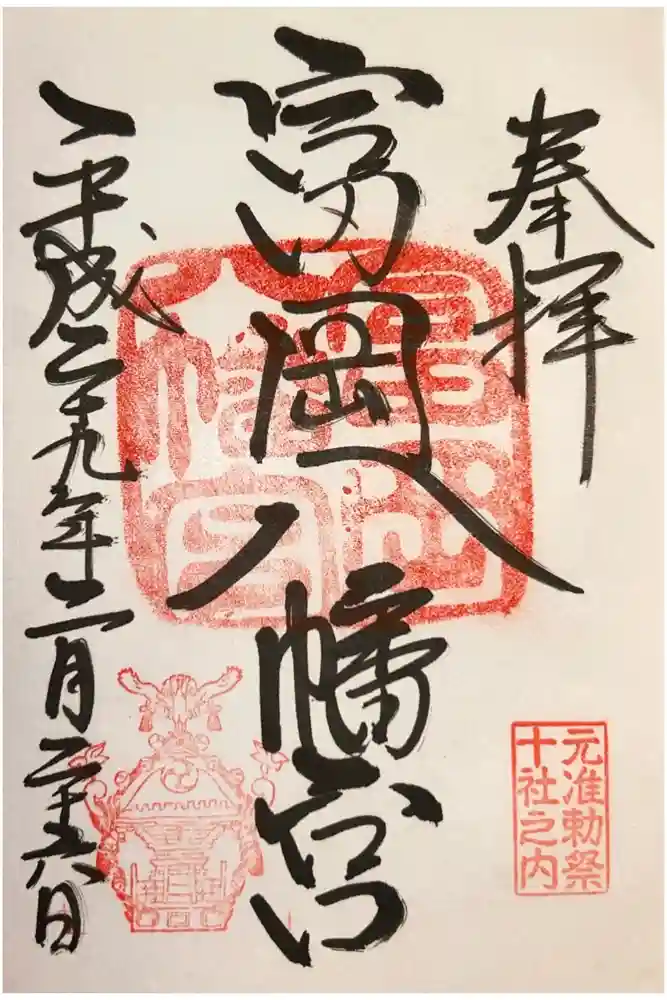 奉拝
元准勅祭
十社之内
富岡八幡宮
富岡
八幡宮
平成二十九年二月二十六日